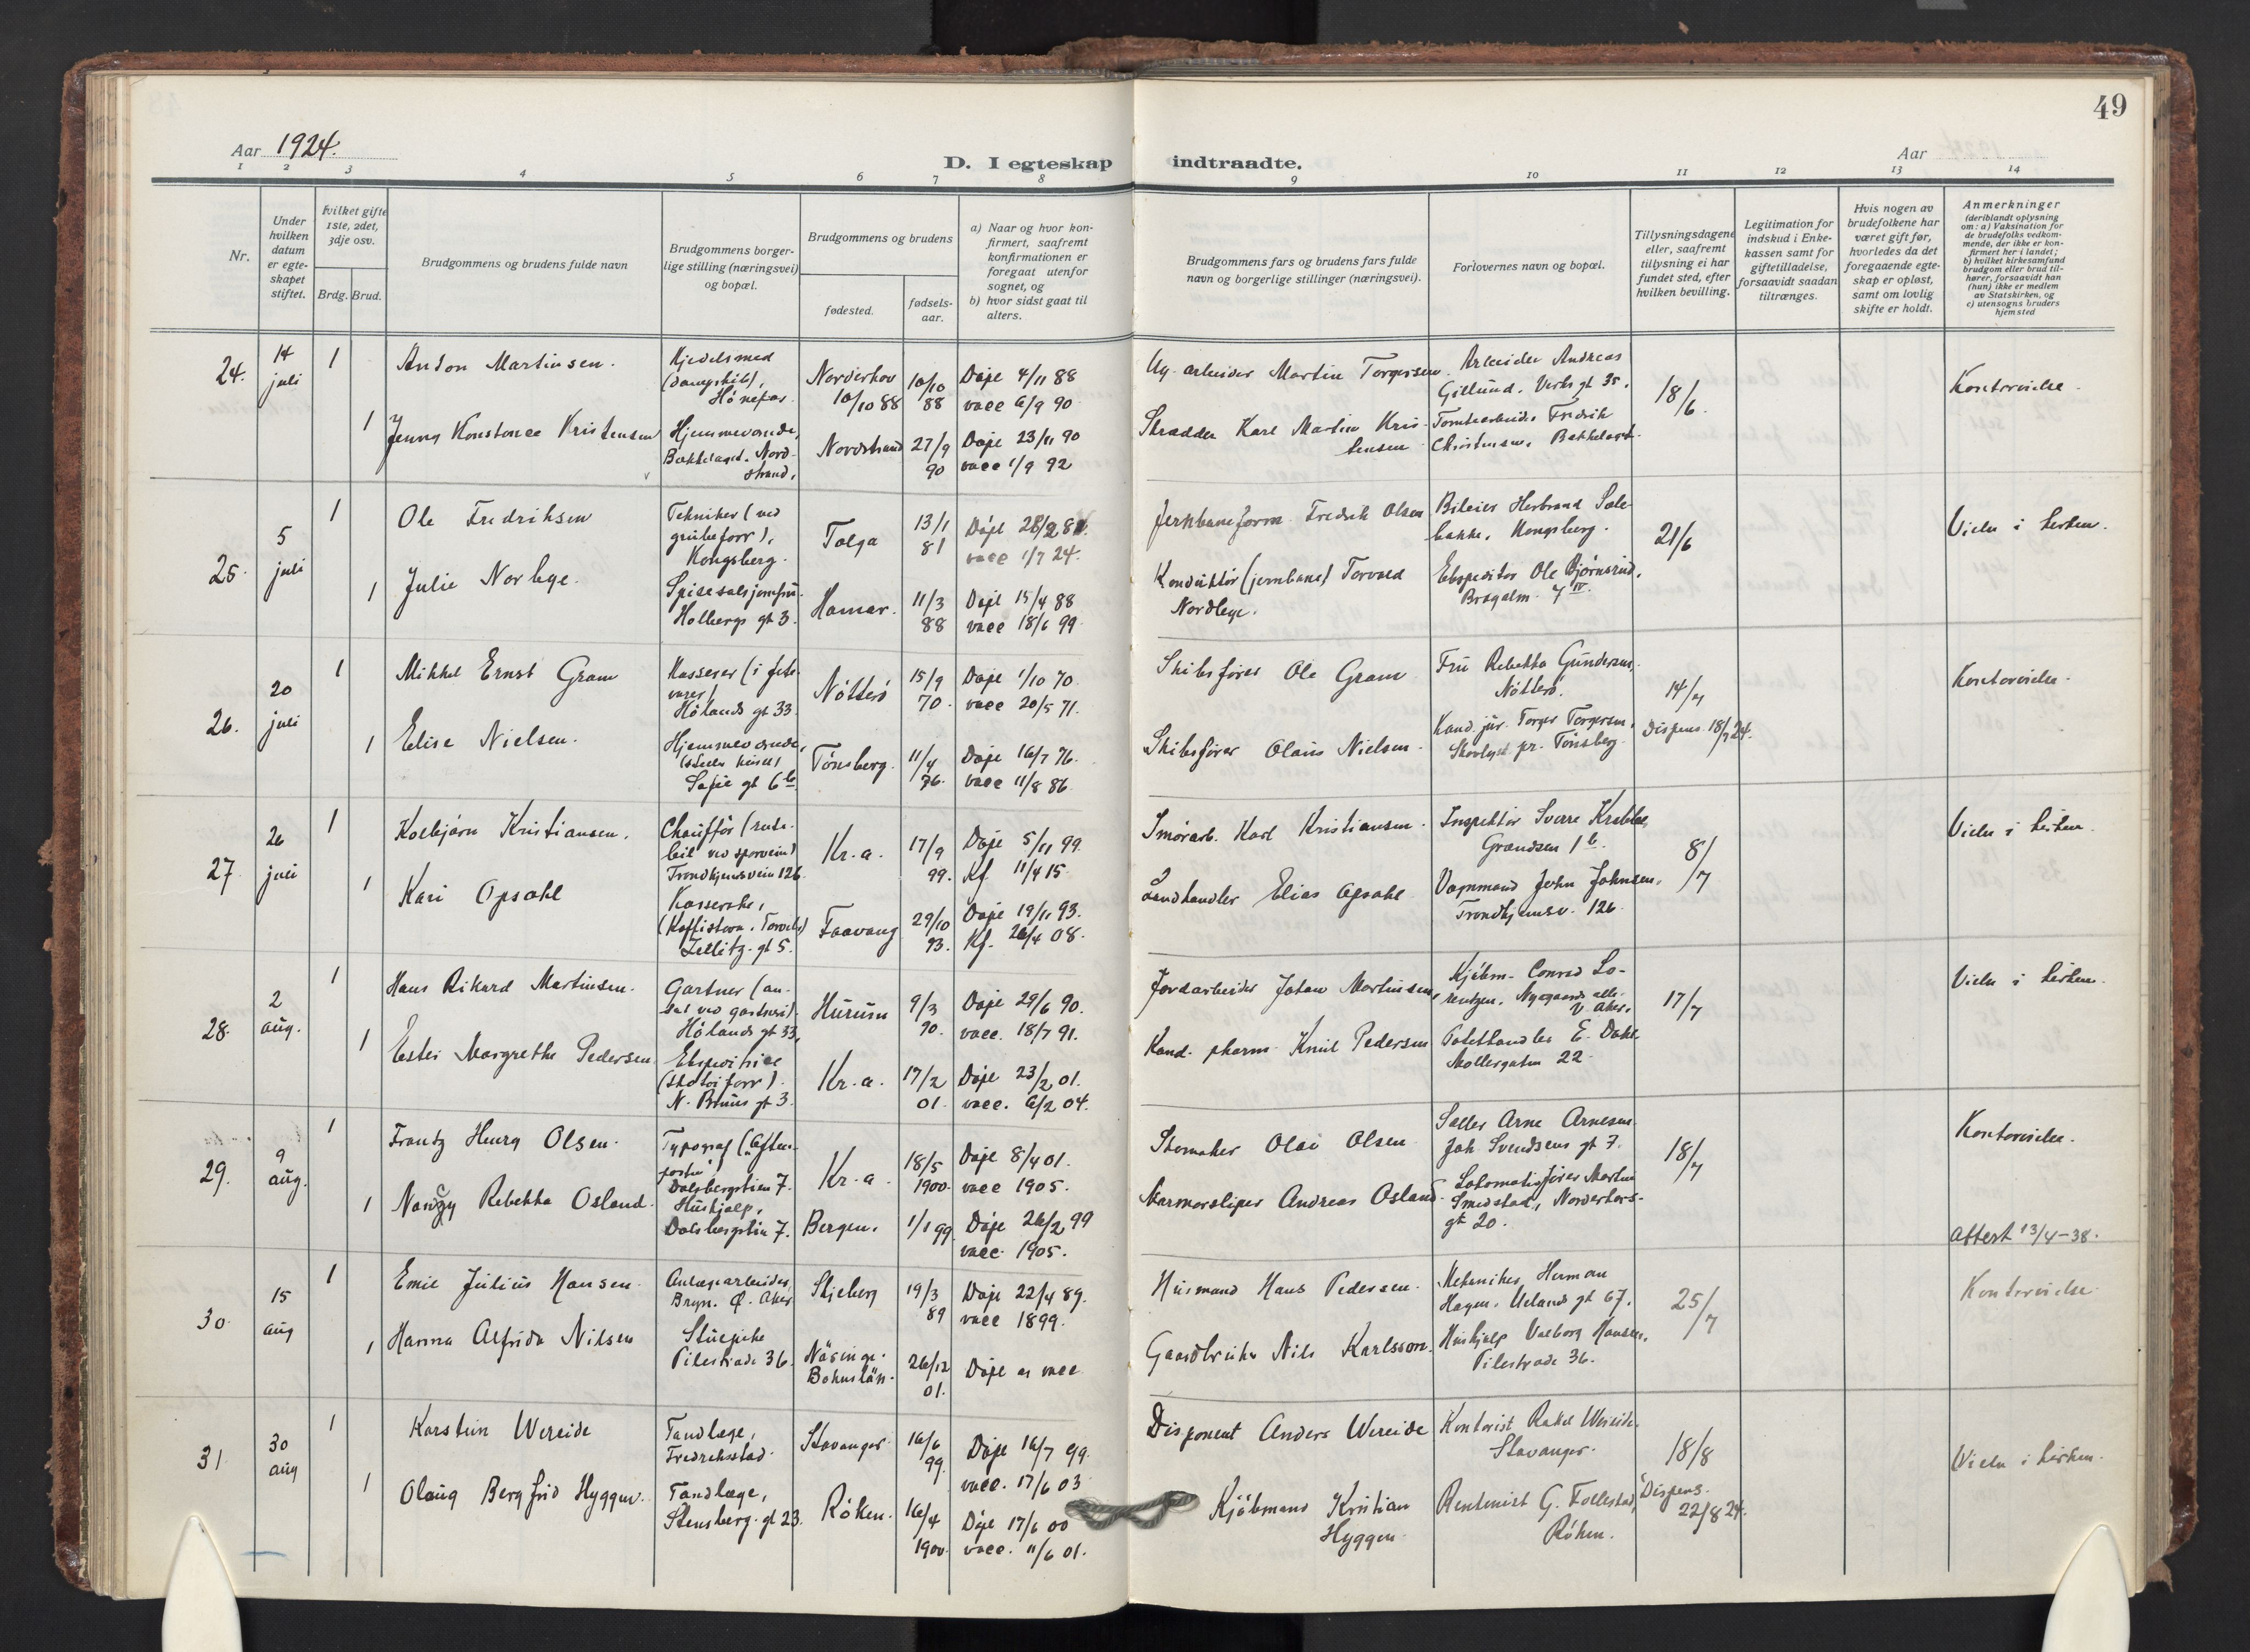 49
Aar 1924.
D. I egteskap indtraadte.
Aar
1 2 3 4 5 6 7 8 9 10 11 12 13 14
Nr.
Under hvilken datum er egteskapet stiftet.
Hvilket gifte 1ste, 2det, 3dje osv.
Brdg. Brud.
Brudgommens og brudens fulde navn
Brudgommens borgerlige stilling (næringsvei) og bopæl.
Brudgommens og brudens
fødested.
fødselsaar.
a) Naar og hvor konfirmert, saafremt konfirmationen er foregaat utenfor sognet, og
b) hvor sidst gaat til alters.
Brudgommens fars og brudens fars fulde navn og borgerlige stillinger (næringsvei).
Forlovernes navn og bopæl.
Tillysningsdagene eller, saafremt tillysning ei har fundet sted, efter hvilken bevilling.
Legitimation for indskud i Enkekassen samt for giftetilladelse, forsaavidt saadan tiltrænges.
Hvis nogen av brudefolkene har været gift før, hvorledes da det foregaaende egteskap er opløst, samt om lovlig skifte er holdt.
Anmerkninger
(deriblandt oplysning om: a) Vaksination for de brudefolks vedkommende, der ikke er konfirmert her i landet;
b) hvilket kirkesamfund brudgom eller brud tilhører, forsaavidt han (hun) ikke er medlem av Statskirken, og
c) utensogns bruders hjemsted
24. 14 juli 1 Anton Martinsen. Kjedelsmed (dampskib), Hönefos Norderhov 10/10 88 10/10 88 Döpt 4/11 88 vacc 6/9 90 arbeider Martin Torgersen. Arbeider Andreas Gillund. Verksgt 35. 18/6. Kontorvielse.
1 Jenny Konstance Kristensen Hjemmeværende, Bækkelaget. Nordstrand. Nordstrand 27/9 90 Döpt 23/11 90 vacc 1/9 92 Skrædder Karl Martin Kristensen Tomtearbeider Fredrik Christensen, Bækkelaget.
25. 5 juli 1 Ole Fredriksen Tekniker (ved grubeforr), Kongsberg. Tolga 13/1 81 Döpt vacc 1/7 24. Fredrik Olsen Bileier Herbrand Kongsberg. 21/6 Vielse i kirken.
1 Julie Norbye. Spisesalsjomfru. Holbergs gt 3. Hamar. 11/3 88 Döpt 15/4 88 vacc 18/6 99 Konduktör (jernbane) Torvald Nordbye. Ekspeditör Ole Björnsrud, 7 IV.
26. 20 juli 1 Mikkel Ernst Gram Kasserer Hölands gt 33. Nötterö 15/9 70. Döpt 1/10 70. vacc 20/5 71. Skibsförer Ole Gram Fru Rebekka Gundersen, Nötterö. 14/7 Dispens. 18/7 24. Kontorvielse.
1 Elise Nielsen. Hjemmeværende, (steller huset) Sofie gt 6 b. Tönsberg. 11/4 76. Döpt 16/7 76. vacc 11/8 86. Skibsförer Olaus Nielsen. Kand. jur. Torger Torgersen, pr. Tönsberg.
27 26 juli 1 Kolbjörn Kristiansen. Chaufför (rutebil ved sporvein) Trondhjemsvein 126. Kr.a. 17/9 99. Döpt 5/11 99. Kf. 11/4 15. Karl Kristiansen. Inspektör Sverre Krabbe, Grændsen 1 b. 8/7 Vielse i kirken.
1 Kari Opsahl Kasserske, (Kaffistova, Torvet) gt 5. Faavang 29/10 93. Döpt 19/11 93. Kf. 26/4 08. Landhandler Elias Opsahl Vognmand John Johnsen, Trondhjemsv. 126.
28. 2 aug. 1 Hans Rikard Martinsen. Gartner (ansat ved gartneri). Hölands gt 33, Hurum 9/3 90. Döpt 29/6 90. vacc. 18/7 91. Jordarbeider Johan Martinsen, Kjöbm. Conrad Lorentzen, Nygaards alle. V. Aker. 17/7 Vielse i kirken.
1 Ester Margrethe Pedersen. Ekspeditrice (skotöiforr). N. Bruns gt 3. Kr.a. 17/2 01. Döpt 23/2 01. vacc. 6/2 04. Kand. pharm. Knut Pedersen E. Dahl. Möllergaten 22.
29. 9 aug. 1 Frantz Henry Olsen. Typograf ("Aftenposten") Dalsbergstien 7. Kr.a. 18/5 1900. Döpt 8/4 01. vacc 1905. Skomaker Olai Olsen Arne Arnesen. Joh. Svendsens gt 7. 18/7 Kontorvielse.
1 Nancy Rebekka Osland. Hushjælp, Dalsbergstien 7. Bergen. 1/1 99. Döpt 26/2 99 vacc. 1905. Marmorsliper Andreas Osland. Lokomotivförer Martin Smedstad, Norderhovsgt 20. Attest 13/4-38.
30. 15 aug 1 Emil Julius Hansen. Anlægsarbeider, Bryn. Ø. Aker. Skjeberg 19/3 89 Döpt 22/4 89. vacc 1899. Husmand Hans Pedersen. Mekaniker Herman Hagen. Uelands gt 67. 25/7 Kontorvielse.
1 Hanna Alfrida Nilsen Stuepike Pilestræde 36. Näsinge. Bohuslän. 26/12 01. Döpt er vacc Gaardbruker Nils Karlsson. Hushjælp Valborg Hansen, Pilestræde 36.
31. 30 aug 1 Karsten Wereide Tandlæge, Fredriksstad. Stavanger. 16/6 99. Döpt 16/7 99. vacc. 17/6 03. Disponent Anders Wereide Kontorist Rakel Wereide. Stavanger. 18/8 Dispens. 22/8 24. Vielse i kirken.
1 Olaug Bergfrid Hyggen. Tandlæge, Stensberg. gt 23. Röken. 16/4 1900. Döpt 17/6 00 vacc. 11/6 01. Kjöbmand Kristian Hyggen. G. Follestad, Röken.